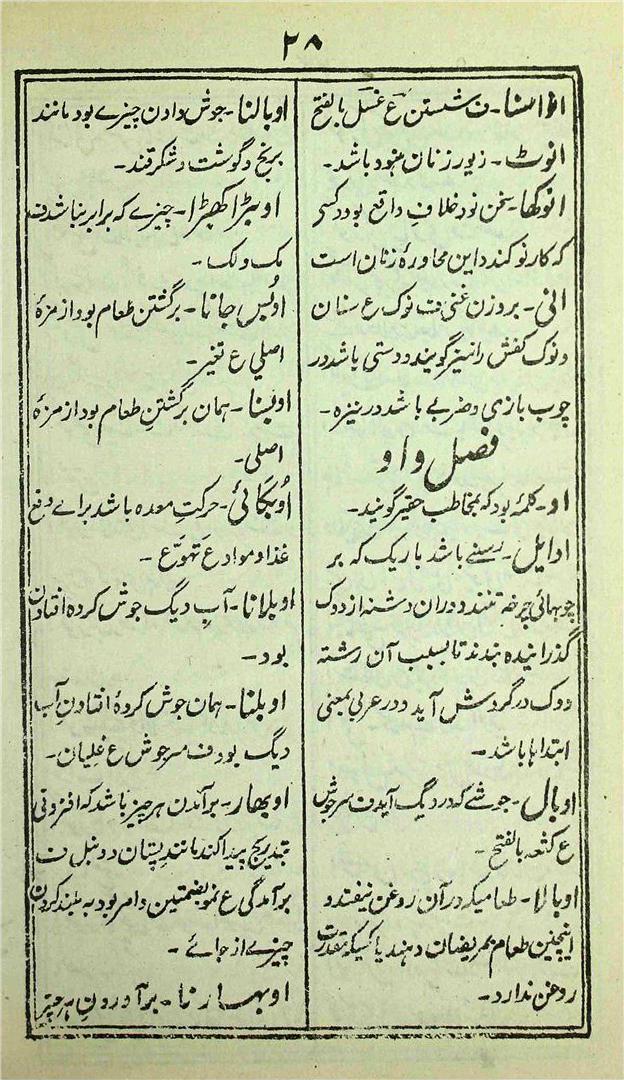 ۲۸
انواسنا۔ ف شستن ع غسل بالفتح
انوٹ۔ زیور زنان ہنود باشد۔
انوکھا۔ سخن نو خلاف واقع بود و کسی
که کار نو کند و این محاورهٔ زنان است
انی۔ بروزن غنی ف نوک ع سنان
و نوک کفش را نیز گویند و دستی باشد در
چوب بازی و ضربے باشد در نیزه۔
فصل واو
او۔ کلمهٔ بود که بمخاطب حقیر گویند۔
اوایل۔ رسنے باشد باریک که بر
چوبهائی چرخه تنند و دوران رشته از دوک
گذرانیده بندند تا بسبب آن رشته
دوک در گردش آید و در عربی بمعنی
ابتداها باشد۔
اوبال۔ جوشے که در دیگ آید ف سرجوش
ع کثعه بالفتح۔
اوبالا۔ طعامیکه در آن روغن نیفتد و
اینچنین طعام بمریضان دهند یا کسیکه مقدرت
روغن ندارد۔
اوبالنا۔ جوش دادن چیزے بود مانند
برنج و گوشت و شکر قند۔
اوبڑا کھبڑا۔ چیزے که برابر نباشد ف
مک و لک۔
اوبس جانا۔ برگشتن طعام بود از مزهٔ
اصلی ع تغیر۔
اوبسنا۔ همان برگشتن طعام بود از مزهٔ
اصلی۔
اُوبکائی۔ حرکتِ معده باشد براے دفع
غذا و مواد ع تهوّع۔
اوبلانا۔ آبِ دیگ جوش کرده افتادن
بود۔
اوبلنا۔ همان جوش کردهٔ افتادنِ آب
دیگ بود ف سرجوش ع غلیان۔
اوبھار۔ برآمدن هر چیز باشد که افزونی
بتدریج پیدا کند مانند پستان و دنبل ف
برآمدگی ع نمو بضمتین و امر بود به بلند کردن
چیزے از جائے۔
اوبھارنا۔ برآوردن هر چیز